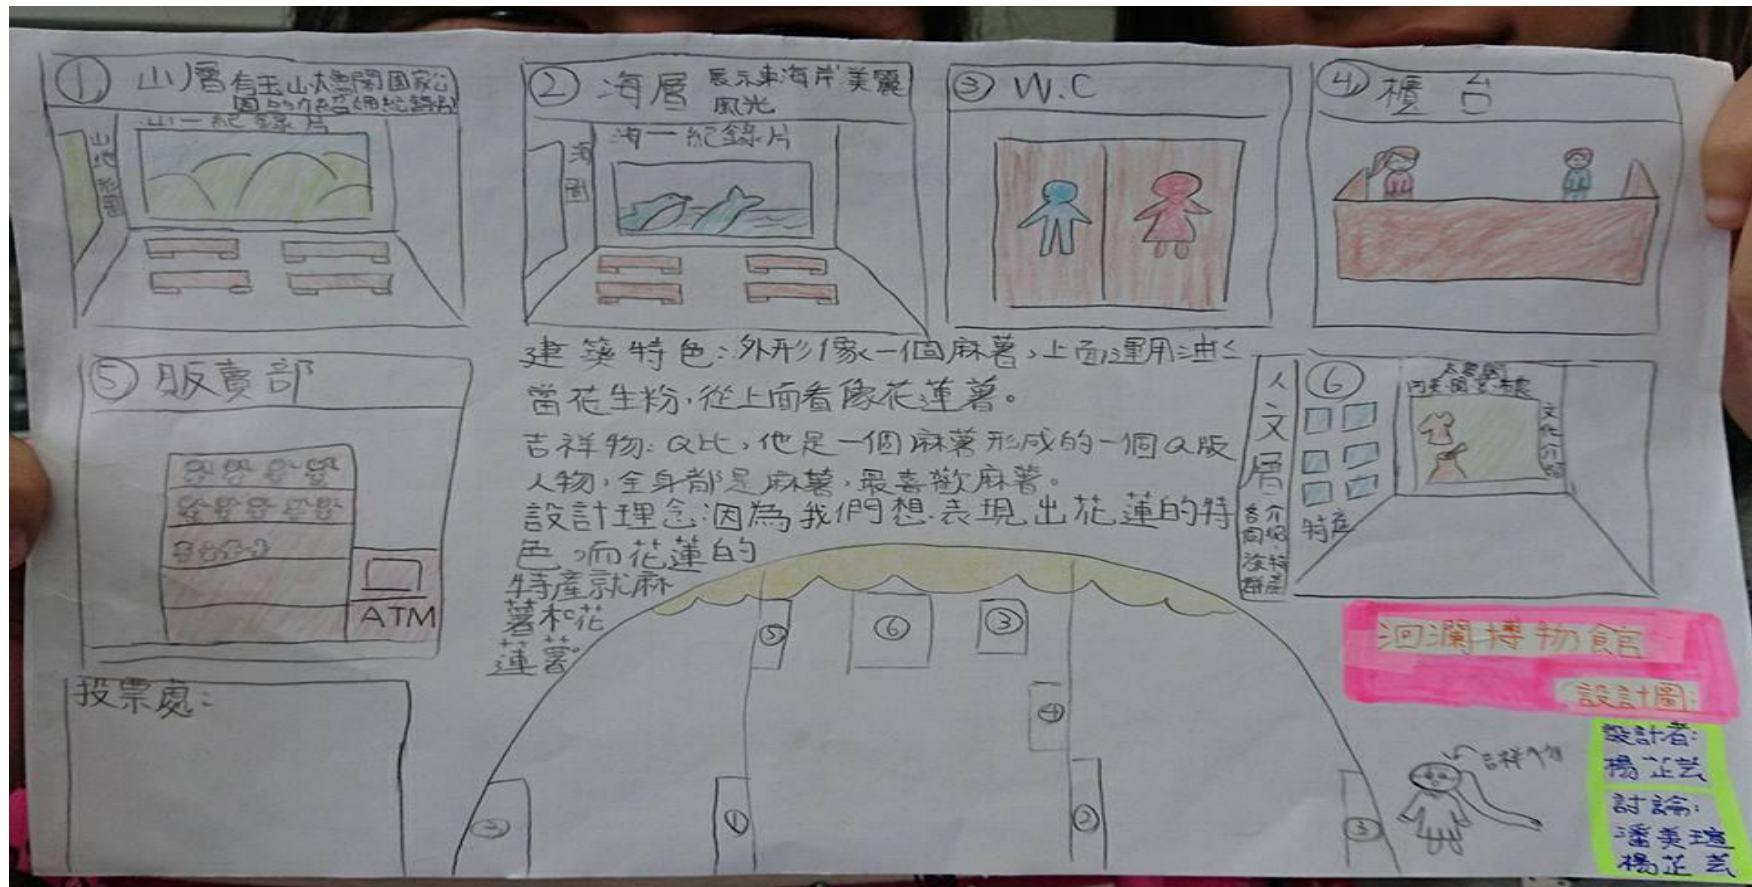 ① 山層 有玉山太魯閣國家公
園的介紹(紀錄片)
山一紀錄片
② 海層 展示東海岸美麗
風光
海一紀錄片
海
圖
③ W.C
④ 櫃台
⑤ 販賣部
ATM
建築特色:外形像一個麻薯,上面運用
當花生粉,從上面看像花蓮薯。
吉祥物:Q比,他是一個麻薯形成的一個Q版
人物,全身都是麻薯,最喜歡麻薯。
設計理念:因為我們想表現出花蓮的特
色,而花蓮的
特產就麻
薯和花
蓮薯。
人文層
⑥
文化介紹
特產
投票處:
⑤
⑥
③
④
③
①
②
③
洄瀾博物館
設計圖:
吉祥物
設計者:
楊芷芸
討論:
潘美瑄
楊芷芸